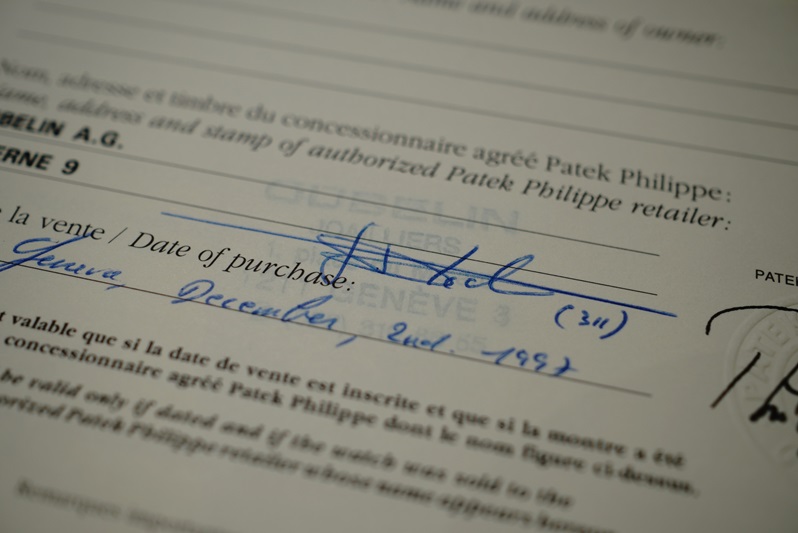 Name and address of owner:
Nom, adresse et timbre du concessionnaire agréé Patek Philippe:
ame, address and stamp of authorized Patek Philippe retailer:
BELIN A.G.
ERNE 9
GUBELIN
JOAILLIERS
GENÈVE 3
la vente / Date of purchase:
(311)
Geneva, December, 2nd. 1997
PATE
t valable que si la date de vente est inscrite et que si la montre a été
concessionnaire agréé Patek Philippe dont le nom figure ci-dessus.
be valid only if dated and if the watch was sold to the
orized Patek Philippe retailer whose name appears
Remarques